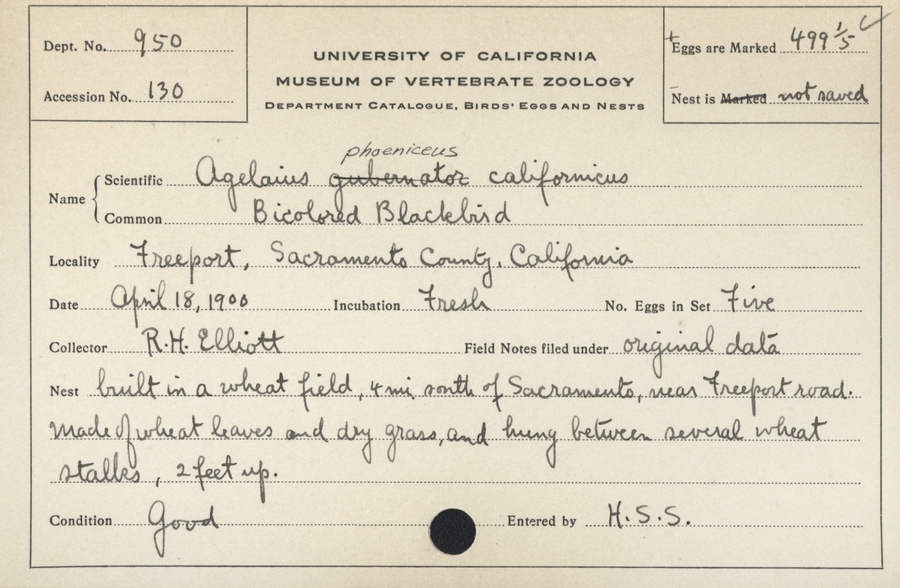 Dept. No. 950
Accession No. 130
UNIVERSITY OF CALIFORNIA
MUSEUM OF VERTEBRATE ZOOLOGY
DEPARTMENT CATALOGUE, BIRDS' EGGS AND NESTS
+Eggs are Marked 499 1/5 ✓
–Nest is Marked not saved
phoeniceus
Name { Scientific Agelaius gubernator californicus
Common Bicolored Blackbird
Locality Freeport, Sacramento County, California
Date April 18, 1900 Incubation Fresh No. Eggs in Set Five
Collector R.H. Elliott Field Notes filed under original data
Nest built in a wheat field, 4 mi. south of Sacramento, near Freeport road.
Made of wheat leaves and dry grass, and hung between several wheat
stalks, 2 feet up.
Condition Good Entered by H.S.S.